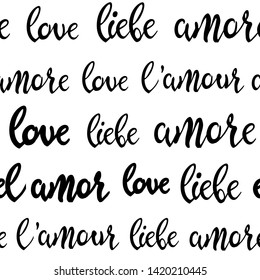 e love liebe amore
amore love l'amour a
love liebe amore
el amor love liebe e
e l'amour liebe amore
shutterstock.com · 1420210445